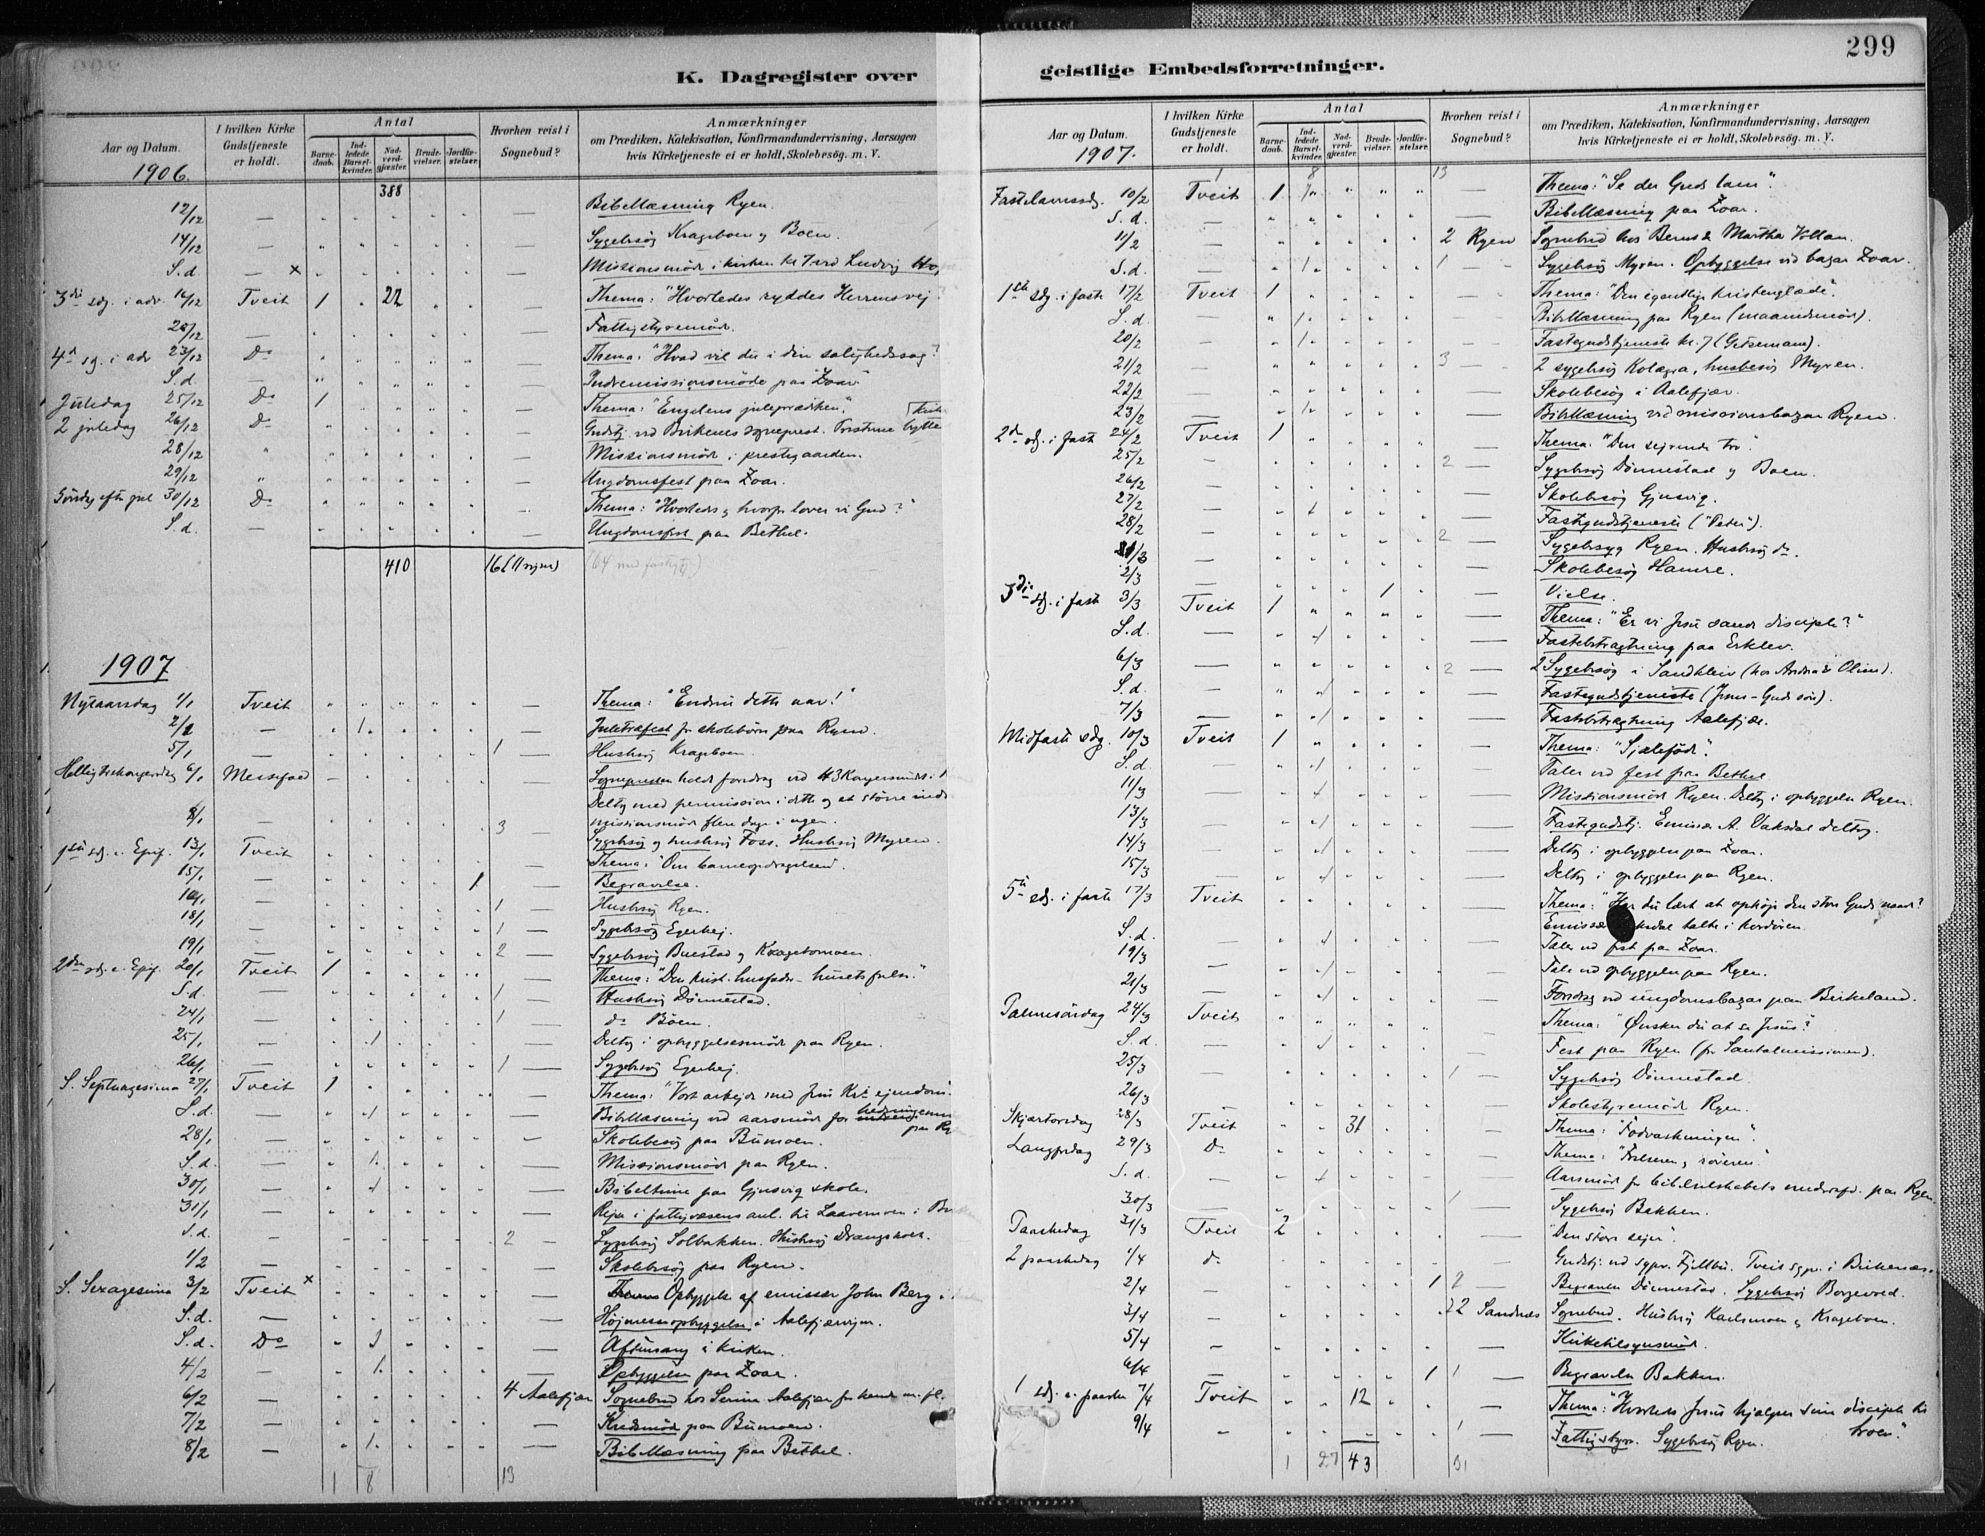 299
K. Dagregister over
geistlige Embedsforretninger.
Aar og Datum.
1906.
I hvilken Kirke Gudstjeneste er holdt.
Antal
Barnedaab.
Indledede Barselkvinder.
Nadverdgjæster.
Brudevielser.
Jordfæstelser.
Hvorhen reist i Sognebud?
Anmærkninger
om Prædiken, Katekisation, Konfirmandundervisning, Aarsagen
hvis Kirketjeneste ei er holdt, Skolebesög. m. V.
388
12/12 — Bibellæsning Ryen.
14/12 — Sygebesög Krageboen og Boen.
S.d — x Missionsmöde i kirken kl 7 ved Ludvig
3die sdg. i adv. 16/12 Tveit 1 22 Thema: "Hvorledes ryddes Herrens vej
— Fattigstyremöde.
4de sg. i adv 23/12 Do Thema: "Hvad vil du i din salighedssag?
S.d. — Indremissionsmöde paa Zoar
Juledag 25/12 Do 1 Thema: "Engelens juleprædiken".
2 juledag 26/12 Do Gudstj. ved Birkenes sogneprest.
28/12 " Missionsmöde i prestegaarden.
29/12 " Ungdomsfest paa Zoar.
Söndag efter jul 30/12 Do Thema: "Hvorledes og hvorfor lover vi Gud?
S.d. — Ungdomsfest paa Bethel.
410
1907
Nytaarsdag 1/1 Tveit — Thema: "Endnu dette aar!"
2/1 — 1. — Juletræfest for skolebörn paa Ryen.
5/1 — 1 — Husbesög Krageboen.
Helligtrekongersdag 6/1 Sognepresten holdt foredrag ved H3Kongersmöde i
Deltog med permission i dette og et större indre
missionsmöde flere dage i ugen.
8/1 — 3 — Sygebesög og husbesög Foss. Husbesög Myren.
1ste sdg. e. Epif. 13/1 Tveit Thema: Om barneopdragelsen.
15/1 — 1 — Begravelse.
16/1 — 1 — Husbesög Ryen.
18/1 — 1 — Sygebesög Egerhej.
19/1 — 2 — Sygebesög Buestad og
2den sdg. e. Epif. 20/1 Tveit 1 Thema: "Den krist. husfader – husets frelse."
S.d. — 1 — Husbesög Dönnestad.
24/1 — 1 — do Böen.
25/1 — 1 — Deltog i opbyggelsesmöde paa Ryen.
26/1 — 1 — Sygebesög Egerhej.
S. Septuagesima 27/1 Tveit 1 — Thema: "Vort arbejde med Jesu Kr. ejendom."
S.d. — Bibellæsning ved aarsmöde for hedningemis
paa Ry
28/1 — Skolebesög paa Bumoen.
S.d. — 1. — Missionsmöde paa Ryen.
30/1 — Bibeltime paa Gjusvig skole.
31/1 — Rejse i fattigvæsens anl. til Laavemoen i
S.d. — 2 — Sygebesög Solbakken. Husbesög Drangsholt.
1/2 — Skolebesög paa Ryen.
S. Sexagesima 3/2 Tveit x Opbyggelse af emissær John Berg i
S.d. — Höjmesseopbyggelse i Aalefjærvigen.
S.d. Do Aftensang i kirken.
4/2 — 1. — Opbyggelse paa Zoar.
6/2 — 4 Aalefjær Sognebud hos Serine Aalefjær
7/2 — Kredsmöde paa Bumoen.
8/2 — 1. — Bibellæsning paa Bethel.
1 8 13
Aar og Datum.
1907.
I hvilken Kirke Gudstjeneste er holdt.
Antal
Barnedaab.
Indledede Barselkvinder.
Nadverdgjæster.
Brudevielser.
Jordfæstelser.
Hvorhen reist i Sognebud?
Anmærkninger
om Prædiken, Katekisation, Konfirmandundervisning, Aarsagen
hvis Kirketjeneste ei er holdt, Skolebesög. m. V.
1 8 13
Fastelavnssdg. 10/2 Tveit 1 — Thema: "Se der Guds lam".
S.d. — Bibellæsning paa Zoar.
11/2 — 2 Ryen Sognebud hos Bernt & Martha Vollan.
S.d. — 1. 1 Sygebesög Myren. Opbyggelse ved bazar Zoar.
1ste sdg. i faste 17/2 Tveit 1 Thema: "Den egentlige kristenglæde".
S.d. — 1. Bibellæsning paa Ryen (maanedsmöde).
20/2 — 1. Fastegudstjeneste kl. 7 (Getsemane).
21/2 3 2 sygebesög Kolægra, husbesög Myren.
22/2 Skolebesög i Aalefjær.
23/2 — Bibellæsning ved missionsbazar Ryen.
2den sdg. i faste 24/2 Tveit 1 Thema: "Den sejrende tro".
25/2 — 2 — Sygebesög Dönnestad og Boen.
26/2 — Skolebesög Gjusvig.
27/2 — Fastegudstjeneste ("Peter").
28/2 — 2 Sygebesög Ryen. Husbesög do.
1/3 — Skolebesög Hamre.
2/3 — 1 Vielse.
3die sdg. i faste 3/3 Tveit 1 Thema: "Er vi Jesu sande disciple?"
S.d. — Fastebetragtning paa Erklev.
6/3 — 2 — 2 Sygebesög i Sandkleiv (hos Andrea & Oline).
S.d. — Fastegudstjeneste (Jesus – Guds sön).
7/3 — Fastebetragtning Aalefjær.
Midfaste sdg. 10/3 Tveit 1 Thema: "Sjæleföde".
S.d. — Taler ved fest paa Bethel.
11/3 — Missionsmöde Ryen. Deltog i opbyggelse Ryen.
13/3 — Fastegudstj. Emissær A. Vaksdal deltog.
14/3 — Deltog i opbyggelse paa Zoar.
15/3 — Deltog i opbyggelse paa Ryen.
5te sdg. i faste 17/3 Tveit Thema: "Har du lært at ophöje den store Guds naade?
Emissær talte i kordören.
S.d. — Taler ved fest paa Zoar.
19/3 — Tale ved opbyggelse paa Ryen.
21/3 — Foredrag ved ungdomsbazar paa Birkeland.
Palmesöndag 24/3 Tveit Thema: "Önsker du at se Jesus?
S.d. — Fest paa Ryen (for Santalmissionen).
25/3 — 1 — Sygebesög Dönnestad.
26/3 — Skolestyremöde Ryen.
Skjærtorsdag 28/3 Tveit 31 Thema: "Fodvaskningen".
Langfredag 29/3 do Thema: "Frelseren og röveren".
S.d. — Aarsmöde for bibelselskabets paa Ryen.
30/3 — 1 — Sygebesög Bakken.
Paaskedag 31/3 Tveit 2 "Den store sejer".
2 paaskedag 1/4 do Gudstj. ved sgpr. Fjellbu. Tveits sgpr. i Birkenæs.
2/4 — 1 2 — Begravelse Dönnestad. Sygebesög Borgevred.
3/4 — 22 Sandnes Sognebud. Husbesög Karlsmoen og Krageboen.
5/4 — Kirketilsynsmöde.
6/4 — 1 1 — Begravelse Bakken.
1 sdg. e. paaske 7/4 Tveit 12 — Thema: "Hvorledes Jesus hjælper sine disciple til
troen".
9/4 — 1 — Fattigstyre. Sygebesög Ryen.
1 27 43 31